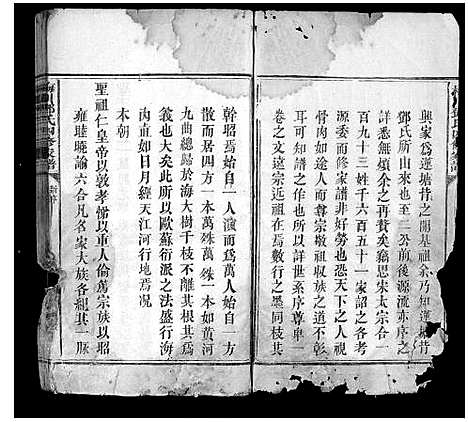 興家爲蓮塘昔之開基祖余乃知蓮塘昔
鄧氏所由來也至二公前後源流亦序之
詳悉無煩余之再贅矣竊思宋太宗合一
百九十三姓千六百五十一家詔之各考
源委而修家譜非好勞也恐天下之人視
骨肉如途人而尊宗敬祖收族之道不彰
本知譜之作也所以詳世系序尊卑
卷之文遠宗近祖在焉數行之墨同枝其
幹昭焉始自一人渙而爲萬人始自一方
散而居四方一本萬殊萬殊一本如黄河
九曲總歸於海大樹千枝不離其根其
義也大矣此所以歐蘇衍派之法盛行海
内直如日月經天江河行地焉况
本朝
聖祖仁皇帝以敦孝悌以重人倫篤宗族以昭
雍睦曉諭六合凡名家大族各纽其一脉